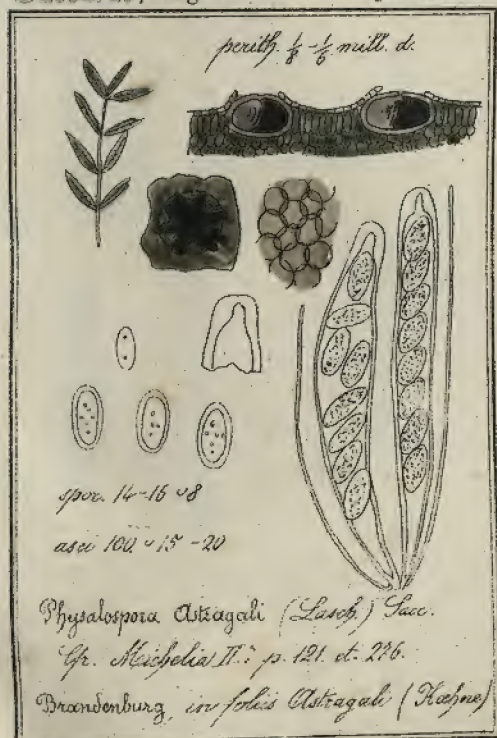 perith. 1/8 - 1/6 mill. d.
spor. 14-16 ≈ 8
asci 100 ≈ 15-20
Physalospora Astragali (Lasch.) Sacc.
Cfr. Michelia II: p. 121. et. 276.
Brandenburg, in foliis Astragali (Koehne)